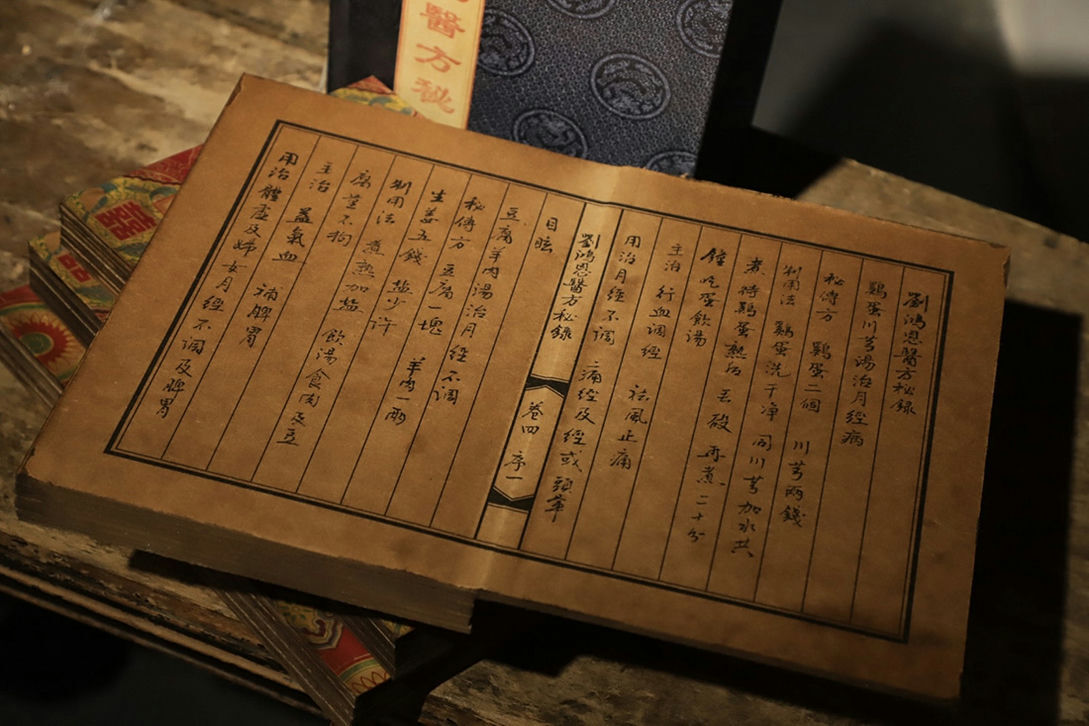 醫方秘
劉鴻恩醫方秘録
鷄蛋川芎湯治月經病
秘傳方 鷄蛋二個 川芎兩錢
制用法 鷄蛋洗干净 同川芎加水共
煮待鷄蛋熟后 去殼 再煮二十分
鐘吃蛋飲湯
主治 行血調經 祛風止痛
用治月經不調 痛經及經或頭暈
劉鴻恩醫方秘録 卷四 序一
目眩
豆腐羊肉湯治月經不調
秘傳方 豆腐一塊 羊肉一兩
生姜五錢 盐少许
制用法 煮熟加盐 飲湯食肉及豆
腐量不拘
主治 益氣血 補脾胃
用治體虛及婦女月經不調及脾胃